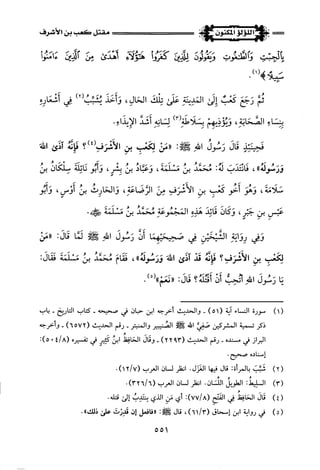 اللؤلؤ المكنون
مقتل كعب بن الأشرف
بِالْجِبْتِ وَالطَّاغُوتِ وَيَقُولُونَ لِلَّذِينَ كَفَرُوا هَٰؤُلَاءِ أَهْدَىٰ مِنَ الَّذِينَ ءَامَنُوا
سَبِيلًا﴾(١).
ثُمَّ رَجَعَ كَعْبٌ إِلَى المَدِينَةِ عَلَى تِلْكَ الحَالِ، وَأَخَذَ يُشَبِّبُ(٢) فِي أَشْعَارِهِ
بِنِسَاءِ الصَّحَابَةِ، وَيُؤْذِيهِمْ بِسَلَاطَةِ(٣) لِسَانِهِ أَشَدَّ الإِيذَاءِ.
فَحِينَئِذٍ قَالَ رَسُولُ اللهِ ﷺ: «مَنْ لِكَعْبِ بنِ الأَشْرَفِ(٤)؟ فَإِنَّهُ آذَى اللهَ
وَرَسُولَهُ»، فَانْتَدَبَ لَهُ: مُحَمَّدُ بنُ مَسْلَمَةَ، وَعَبَّادُ بنُ بِشْرٍ، وَأَبُو نَائِلَةَ سِلْكَانُ بنُ
سَلَامَةَ، وَهُوَ أَخُو كَعْبِ بنِ الأَشْرَفِ مِنَ الرَّضَاعَةِ، وَالحَارِثُ بنُ أَوْسٍ، وَأَبُو
عَبْسِ بنِ جَبْرٍ، وَكَانَ قَائِدَ هَذِهِ المَجْمُوعَةِ مُحَمَّدُ بنُ مَسْلَمَةَ ﷺ.
وَفِي رِوَايَةِ الشَّيْخَيْنِ فِي صَحِيحَيْهِمَا أَنَّ رَسُولَ اللهِ ﷺ لَمَّا قَالَ: «مَنْ
لِكَعْبِ بنِ الأَشْرَفِ؟ فَإِنَّهُ قَدْ آذَى اللهَ وَرَسُولَهُ»، فَقَامَ مُحَمَّدُ بنُ مَسْلَمَةَ فَقَالَ:
يَا رَسُولَ اللهِ أَتُحِبُّ أَنْ أَقْتُلَهُ؟ قَالَ: «نَعَمْ»(٥).
(١) سورة النساء آية (٥١) - والحديث أخرجه ابن حبان في صحيحه - كتاب التاريخ - باب
ذكر تسمية المشركين صَفِيَّ الله ﷺ الصنيبير والمنبتر - رقم الحديث (٦٥٧٢) - وأخرجه
البزار في مسنده - رقم الحديث (٢٢٩٣) - وقال الحافظ ابن كثير في تفسيره (٥٠٤/٨):
إسناده صحيح.
(٢) شَبَّبَ بالمرأة: قال فيها الغزل. انظر لسان العرب (١٢/٧).
(٣) السليط: الطويل اللسان. انظر لسان العرب (٣٢٦/٦).
(٤) قال الحافظ في الفتح (٧٧/٨): أي من الذي ينتدب إلى قتله.
(٥) في رواية ابن إسحاق (٦١/٣)، قال ﷺ: «فافعل إن قدرت على ذلك».
٥٥١